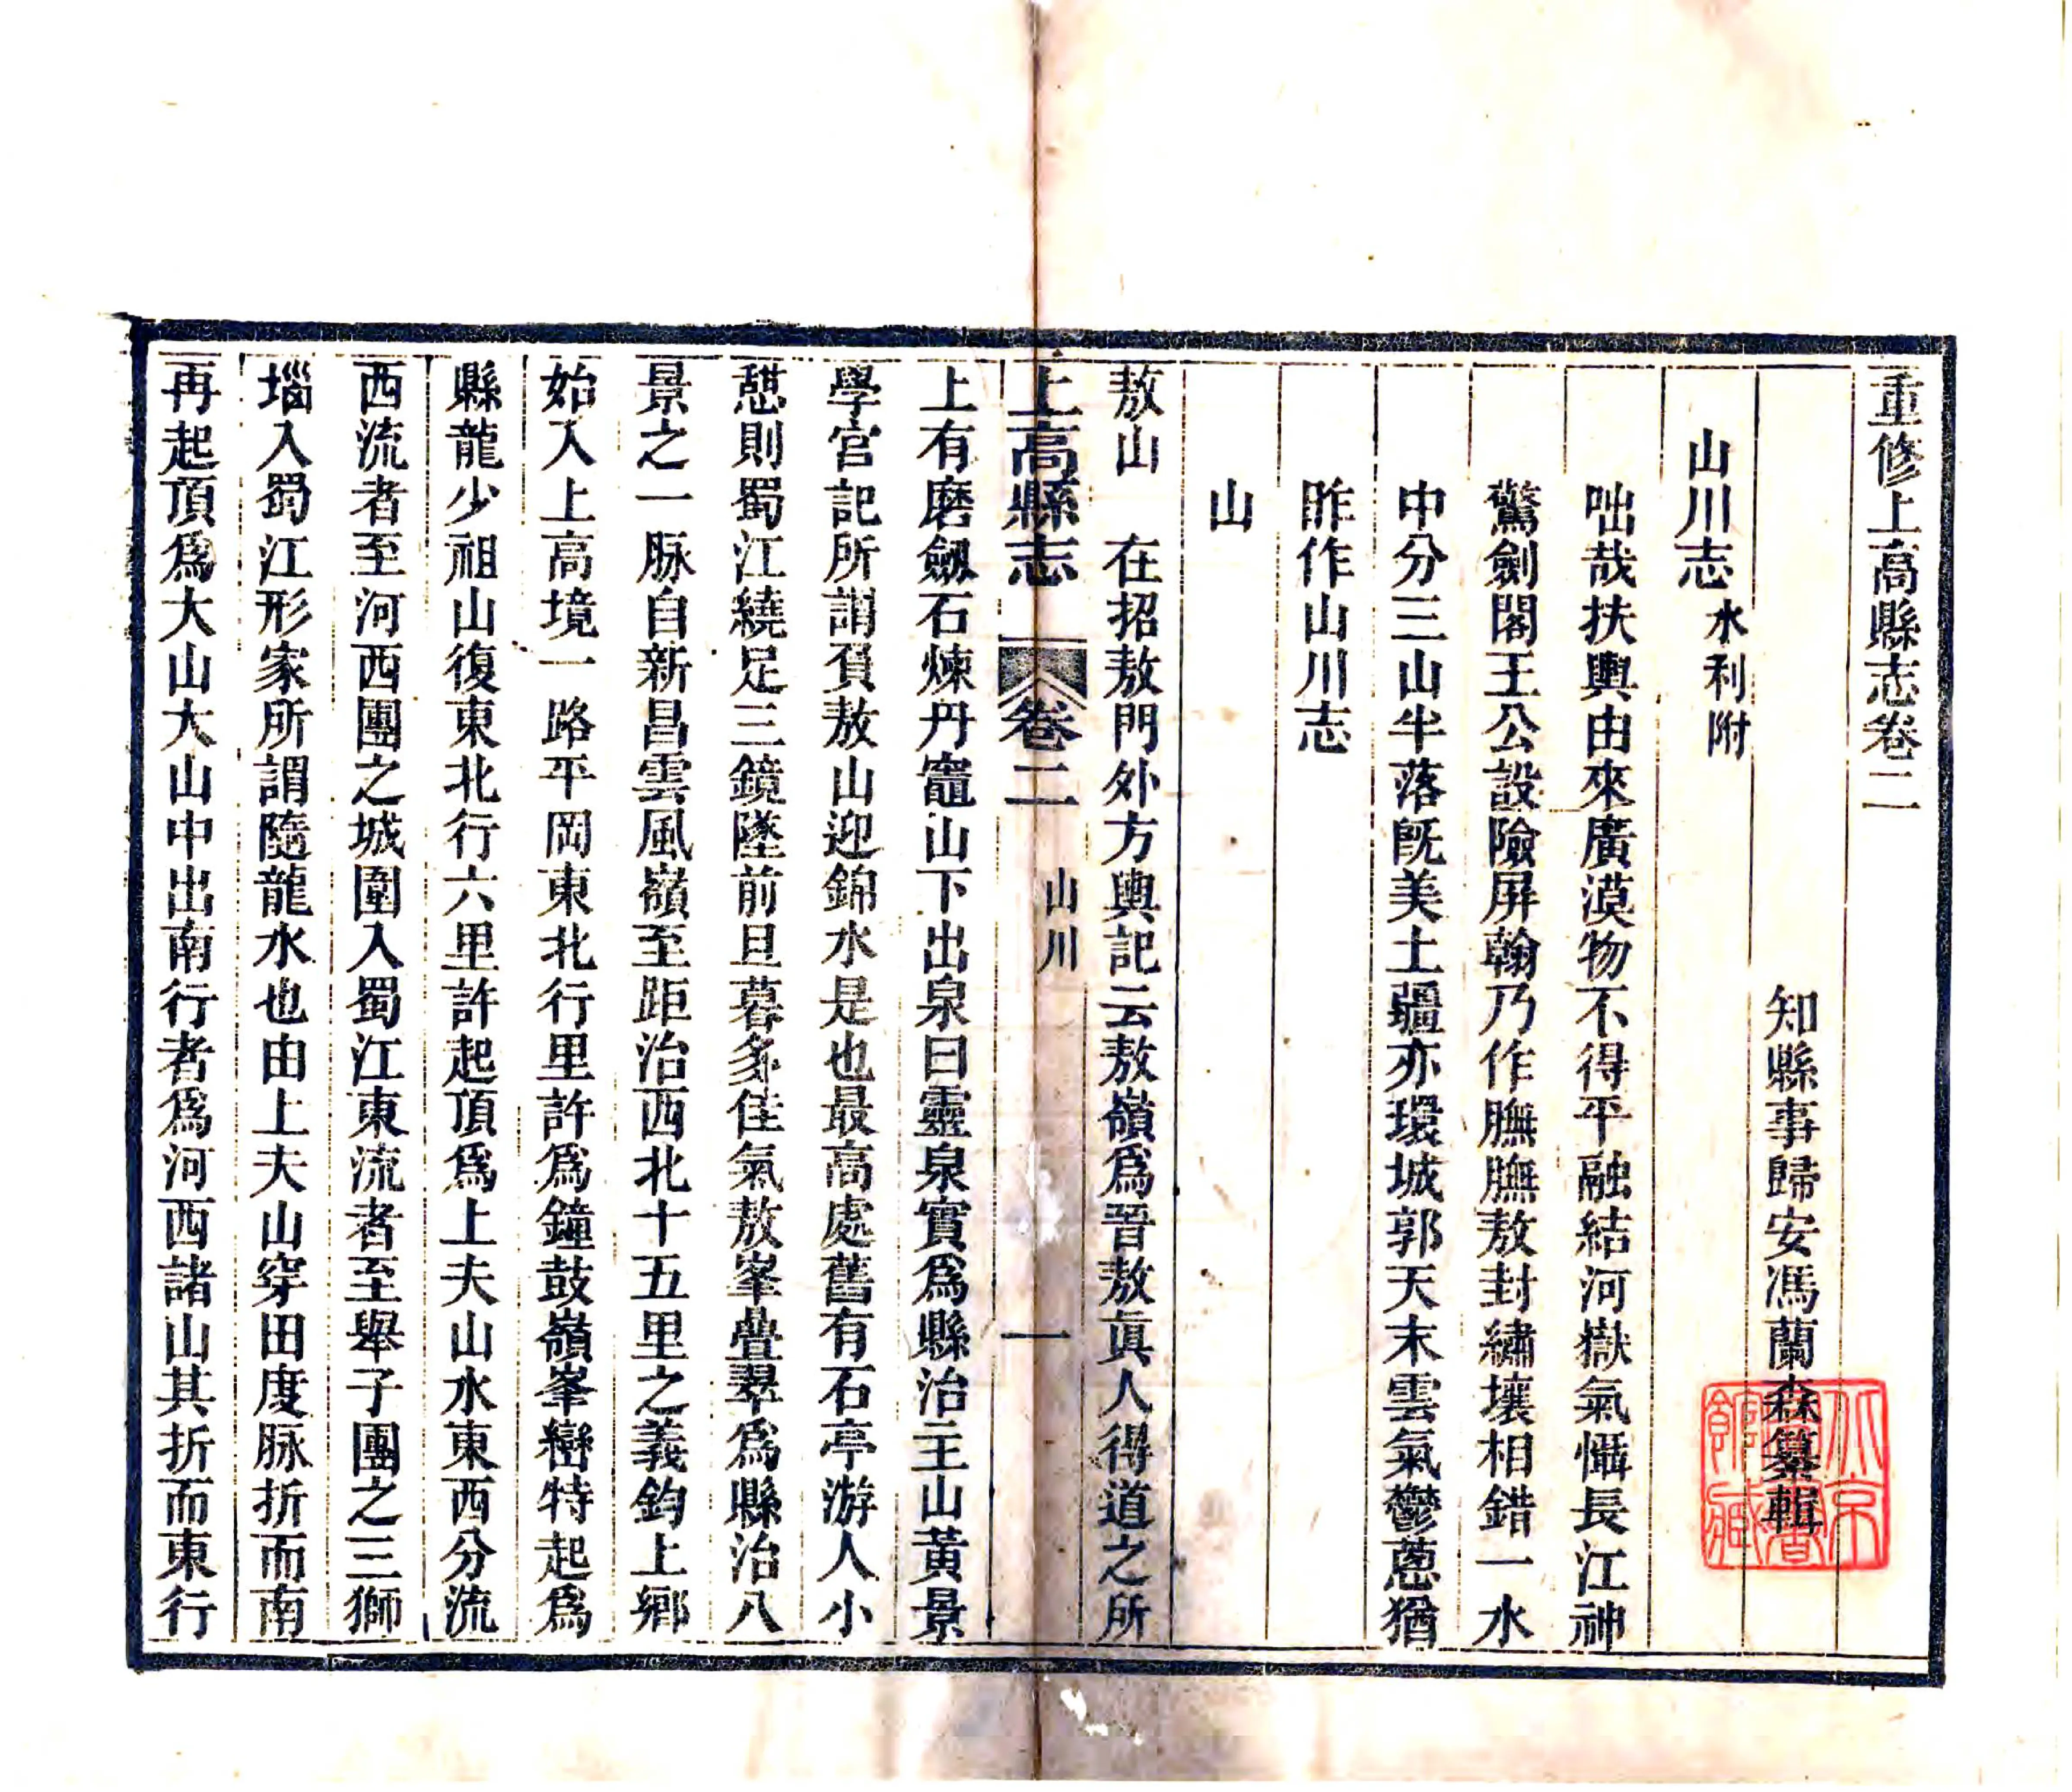 重修上高縣志卷二
知縣事歸安馮蘭森纂輯
山川志 水利附
咄哉扶輿由來廣漠物不得平融結河嶽氣懾長江神
驚劍閣王公設險屏翰乃作膴膴敖封繡壤相錯一水
中分三山半落旣美土疆亦環城郭天末雲氣鬱蔥猶
昨作山川志
山
敖山 在招敖門外方輿記云敖嶺爲晉敖眞人得道之所
上高縣志 卷二 山川 一
上有磨劔石煉丹竈山下出泉曰靈泉實爲縣治主山黃景
學宮記所謂負敖山迎錦水是也最高處舊有石亭游人小
憇則蜀江繞足三鏡墜前旦暮多佳氣敖峯疊翠爲縣治八
景之一脉自新昌雲風嶺至距治西北十五里之義鈞上鄉
始入上高境一路平岡東北行里許爲鐘鼓嶺峯巒特起爲
縣龍少祖山復東北行六里許起頂爲上夫山水東西分流
西流者至河西團之城圍入蜀江東流者至舉子團之三獅
堖入蜀江形家所謂隨龍水也由上夫山穿田度脉折而南
再起頂爲大山大山中出南行者爲河西諸山其折而東行
北京圖書館藏